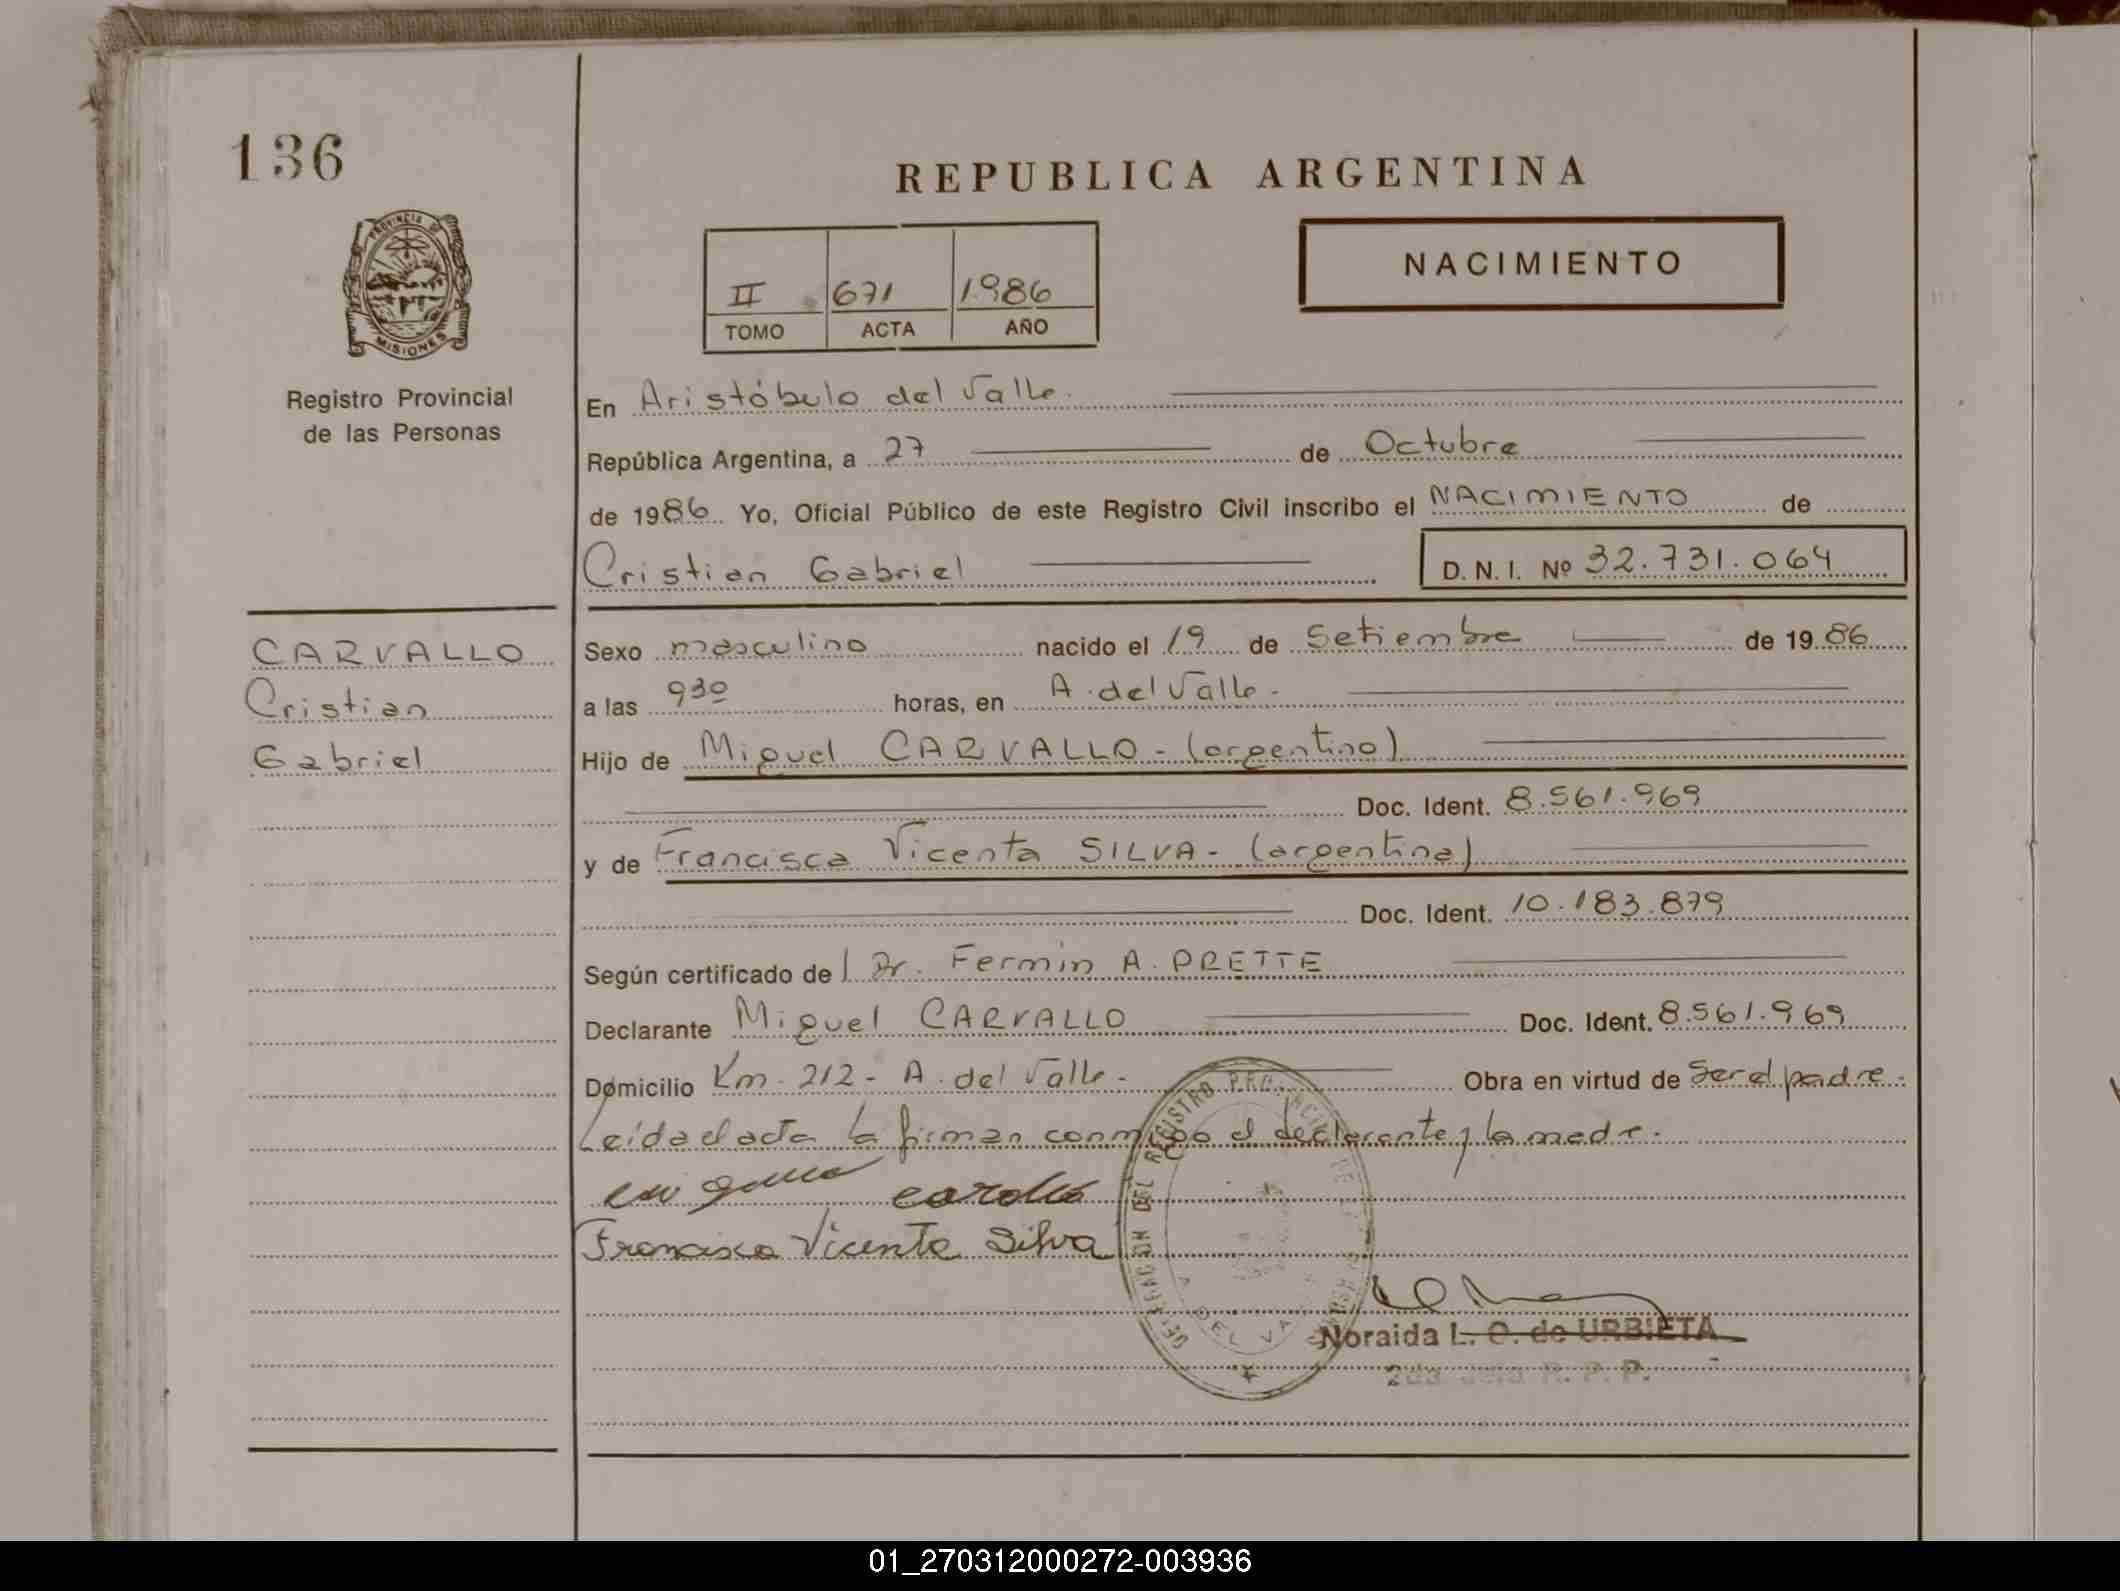 136
REPUBLICA ARGENTINA
PROVINCIA DE
MISIONES
Registro Provincial
de las Personas
NACIMIENTO
II 671 1986
TOMO ACTA AÑO
En Aristóbulo del Valle.
República Argentina, a 27 de Octubre
de 1986 Yo, Oficial Público de este Registro Civil inscribo el NACIMIENTO de
Cristian Gabriel D. N. I. Nº 32.731.064
CARVALLO
Cristian
Gabriel
Sexo masculino nacido el 19 de Setiembre de 1986
a las 930 horas, en A. del Valle.
Hijo de Miguel CARVALLO - (argentino)
Doc. Ident. 8.561.969
y de Francisca Vicenta SILVA - (argentina)
Doc. Ident. 10.183.879
Según certificado del Dr. Fermin A. PRETTE
Declarante Miguel CARVALLO Doc. Ident. 8.561.969
Domicilio Km. 212 - A. del Valle - Obra en virtud de ser el padre.
Leída el acta la firman conmigo el declarante y la madre.
Francisca Vicenta Silva
DEL REGISTRO
DEL VALLE
Noraida L. O. de URBIETA
2da. Jefa R. P. P.
01_270312000272-003936